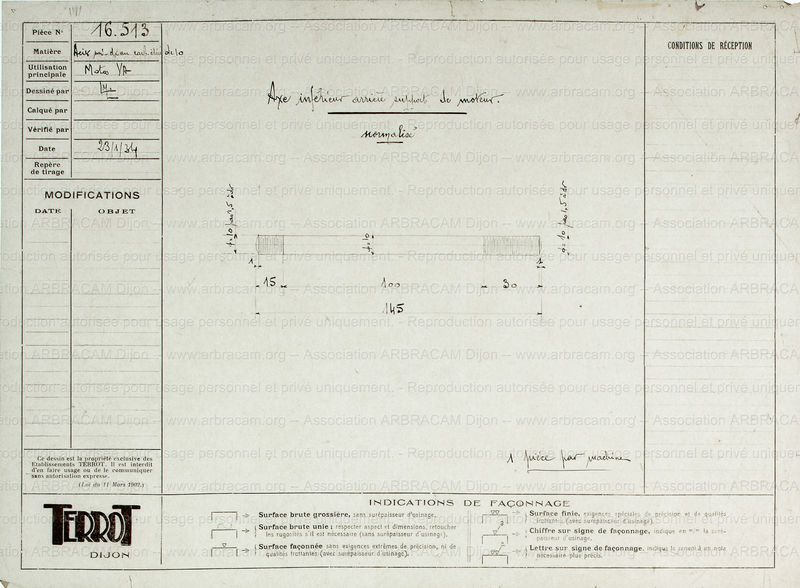 Pièce N° 16.513
Matière
Utilisation principale Moto VA
Dessiné par
Calqué par
Vérifié par
Date 23/1/34
Repère de tirage
MODIFICATIONS
DATE OBJET
Axe inférieur arrière support de moteur.
normalisé
CONDITIONS DE RÉCEPTION
1 1
15 100 30
145
1 pièce par machine
Ce dessin est la propriété exclusive des
Etablissements TERROT. Il est interdit
d'en faire usage ou de le communiquer
sans autorisation expresse.
(Loi du 11 Mars 1902.)
TERROT
DIJON
INDICATIONS DE FAÇONNAGE
Surface brute grossière, sans surépaisseur d'usinage.
Surface brute unie; respecter aspect et dimensions, retoucher
les rugosités s'il est nécessaire (sans surépaisseur d'usinage).
Surface façonnée sans exigences extrêmes de précision, ni de
qualités frottantes (avec surépaisseur d'usinage).
Surface finie, exigences spéciales de précision et de qualités
frottantes (avec surépaisseur d'usinage).
Chiffre sur signe de façonnage, indique en m/m la surépaisseur d'usinage.
Lettre sur signe de façonnage, indique le renvoi à une note
nécessaire plus précis.
www.arbracam.org – Association ARBRACAM Dijon
Reproduction autorisée pour usage personnel et privé uniquement.